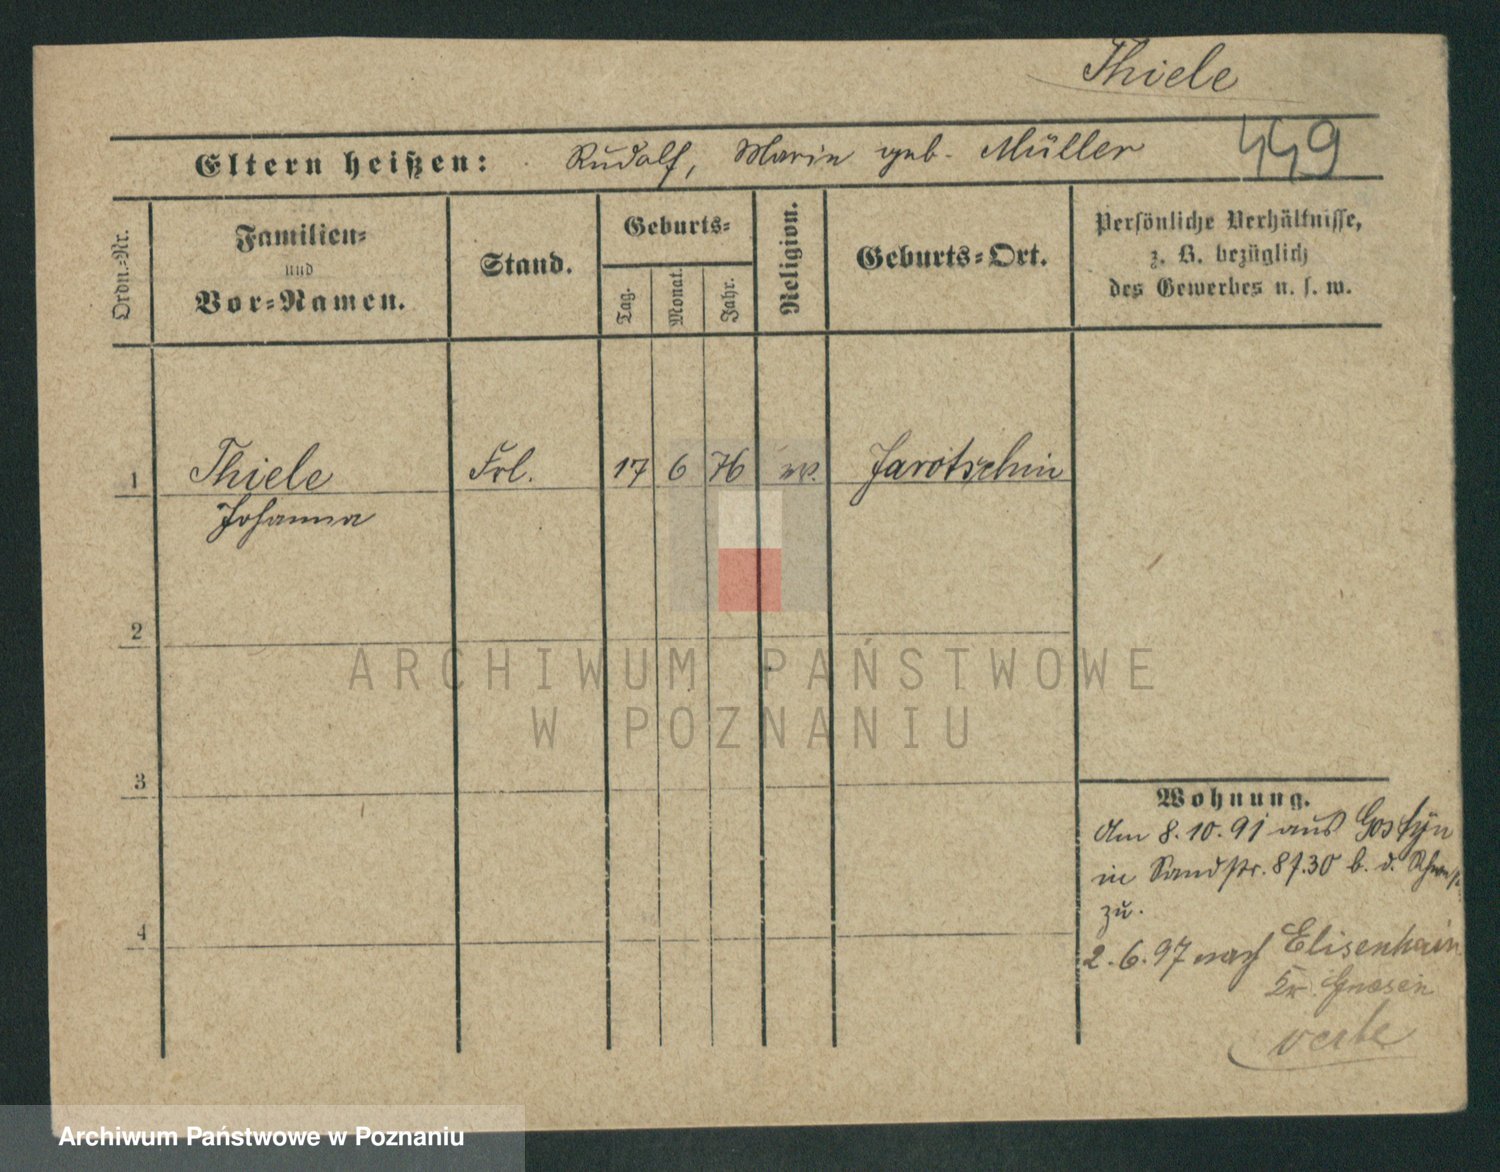 Thiele
Eltern heißen: Rudolf, Marie geb. Müller
449
Ordn.-Nr.
Familien-
und
Vor-Namen.
Stand.
Geburts-
Tag.
Monat.
Jahr.
Religion.
Geburts-Ort.
Persönliche Verhältnisse,
z. B. bezüglich
des Gewerbes u. s. w.
1 Thiele Frl. 17 6 76 ev. Jarotschin
Johanna
2
3
4
Wohnung.
Am 8.10.91 aus Gostÿn
in Sandstr. 8 b. d.
zu.
2.6.97 nach Elisenhain
Kr. Gnesen
ARCHIWUM PAŃSTWOWE
W POZNANIU
Archiwum Państwowe w Poznaniu